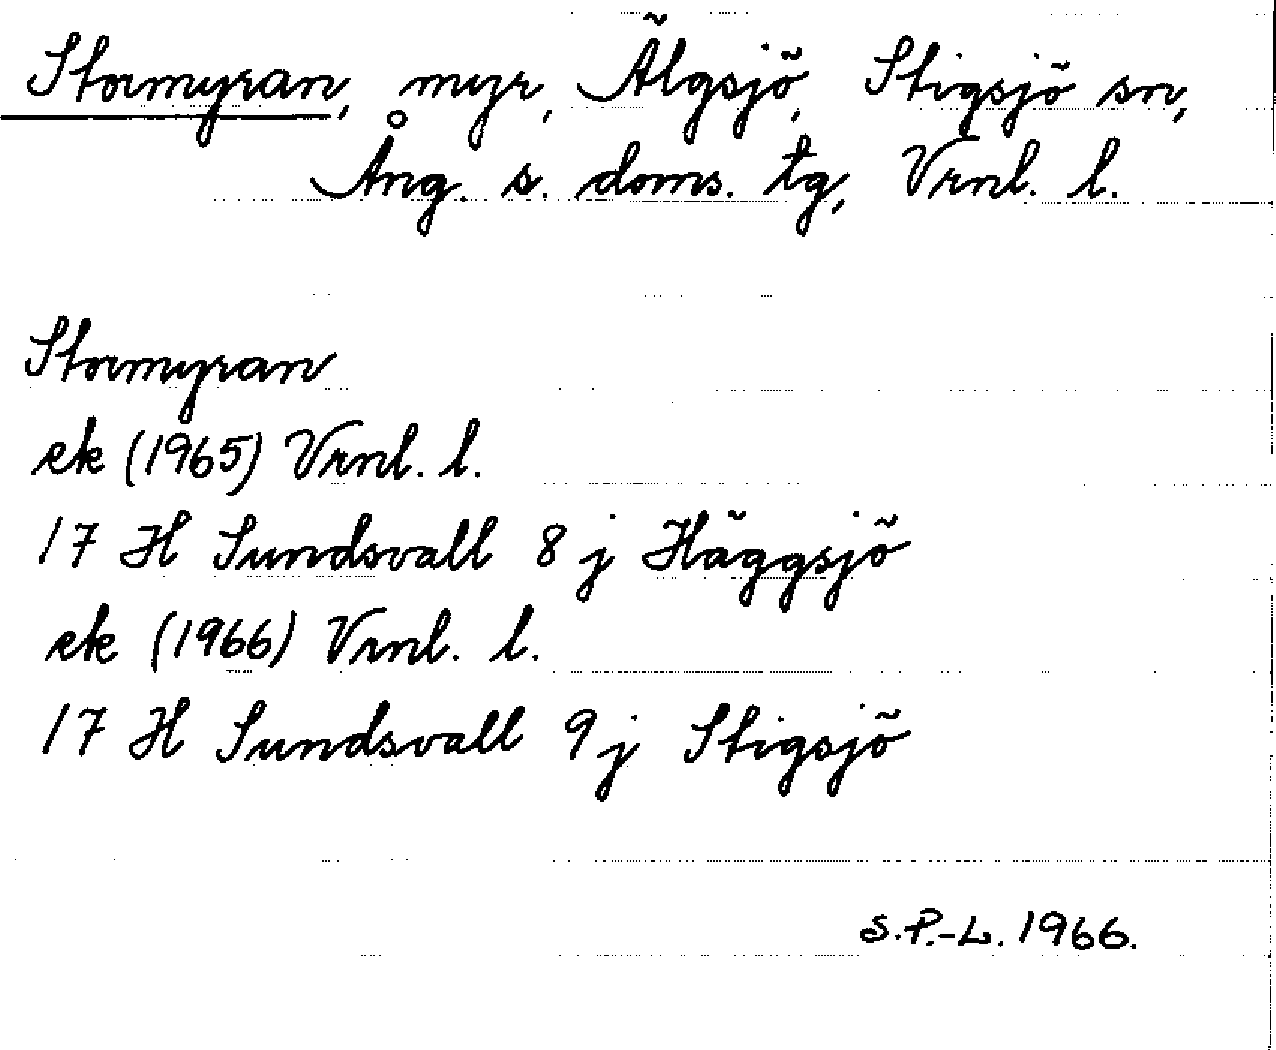 Stormyran, myr, Älgsjö, Stigsjö sn,
Ång. s. doms. tg, Vrnl. l.
Stormyran
ek (1965) Vrnl. l.
17 H Sundsvall 8 j Häggsjö
ek (1966) Vrnl. l.
17 H Sundsvall 9 j Stigsjö
S.P.-L. 1966.